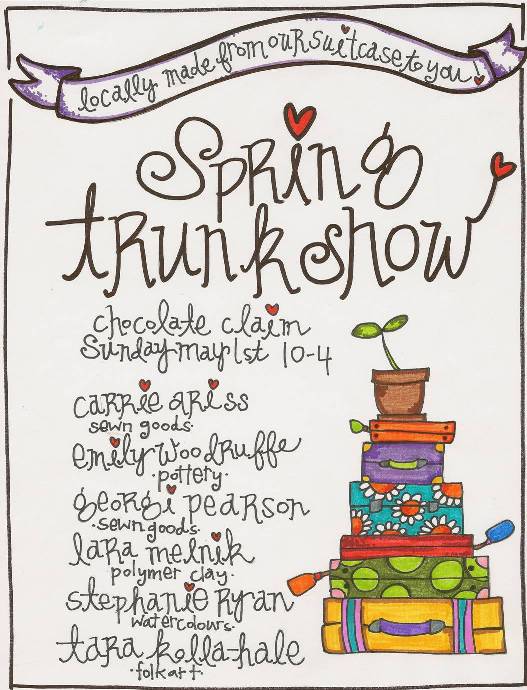 locally made from our suitcase to you!
Spring
trunk show
chocolate claim
Sunday may 1st 10-4
carrie ariss
sewn goods.
emily woodruffe
.pottery.
georgi pearson
.sewn goods.
lara melnik
polymer clay.
stephanie ryan
watercolours.
tara kolla-hale
.folkart.